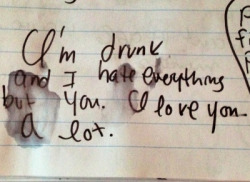 I'm drunk
and I hate everything
but you. I love you
A lot.